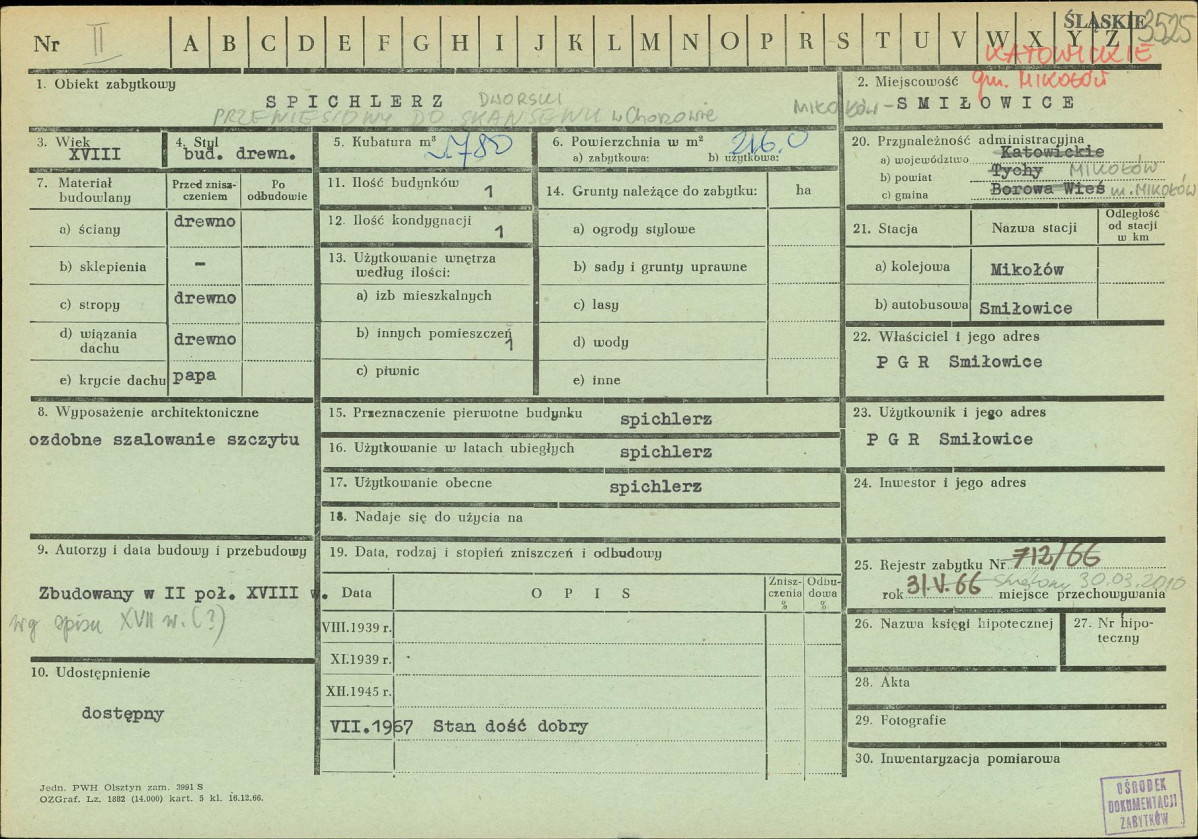 Nr II A B C D E F G H I J K L M N O P R S T U V W X Y Z ŚLĄSKIE 3525
KATOWICKIE
gm. MIKOŁÓW
1. Obiekt zabytkowy
SPICHLERZ DWORSKI
PRZEWIESIONY DO SKANSENU w Chorzowie
2. Miejscowość
MIKOŁÓW - SMIŁOWICE
3. Wiek
XVIII
4. Styl
bud. drewn.
5. Kubatura m³ 2.780
6. Powierzchnia w m² 216.0
a) zabytkowa: b) użytkowa:
20. Przynależność administracyjna
a) województwo Katowickie
b) powiat Tychy MIKOŁÓW
c) gmina Borowa Wieś m. MIKOŁÓW
7. Materiał budowlany
Przed znisz-
czeniem
Po
odbudowie
a) ściany drewno
b) sklepienia -
c) stropy drewno
d) wiązania
dachu drewno
e) krycie dachu papa
11. Ilość budynków 1
12. Ilość kondygnacji 1
13. Użytkowanie wnętrza
według ilości:
a) izb mieszkalnych
b) innych pomieszczeń 1
c) piwnic
14. Grunty należące do zabytku: ha
a) ogrody stylowe
b) sady i grunty uprawne
c) lasy
d) wody
e) inne
21. Stacja Nazwa stacji
Odległość
od stacji
w km
a) kolejowa Mikołów
b) autobusowa Smiłowice
22. Właściciel i jego adres
P G R Smiłowice
8. Wyposażenie architektoniczne
ozdobne szalowanie szczytu
15. Przeznaczenie pierwotne budynku spichlerz
16. Użytkowanie w latach ubiegłych spichlerz
17. Użytkowanie obecne spichlerz
18. Nadaje się do użycia na
23. Użytkownik i jego adres
P G R Smiłowice
24. Inwestor i jego adres
9. Autorzy i data budowy i przebudowy
Zbudowany w II poł. XVIII w.
wg spisu XVII w. (?)
19. Data, rodzaj i stopień zniszczeń i odbudowy
Data O P I S
Znisz-
czenia
%
Odbu-
dowa
%
VIII.1939 r.
XI.1939 r.
XII.1945 r.
VII.1967 Stan dość dobry
25. Rejestr zabytku Nr 712/66
rok 31.V.66 skreślony 30.03.2010
miejsce przechowywania
26. Nazwa księgi hipotecznej
27. Nr hipo-
teczny
10. Udostępnienie
dostępny
28. Akta
29. Fotografie
30. Inwentaryzacja pomiarowa
Jedn. PWH Olsztyn zam. 3991 S
OZGraf. Lz. 1882 (14.000) kart. 5 kl. 16.12.66.
OŚRODEK
DOKUMENTACJI
ZABYTKÓW